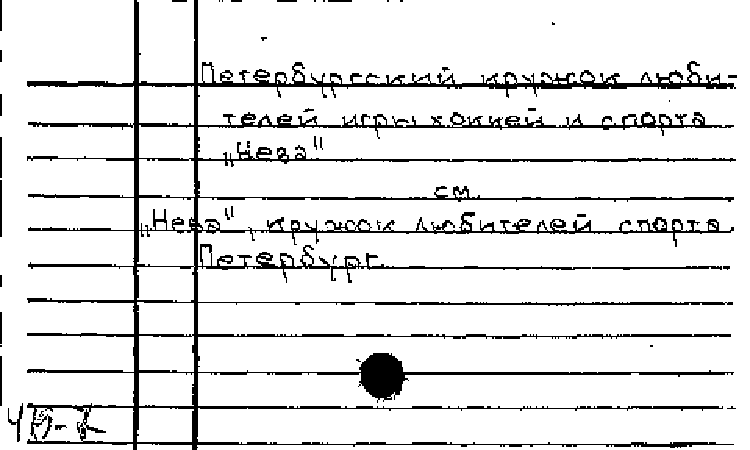 Петербургский кружок люби-
телей игры хоккей и спорта
„Нева"
см.
„Нева", кружок любителей спорта.
Петербург.